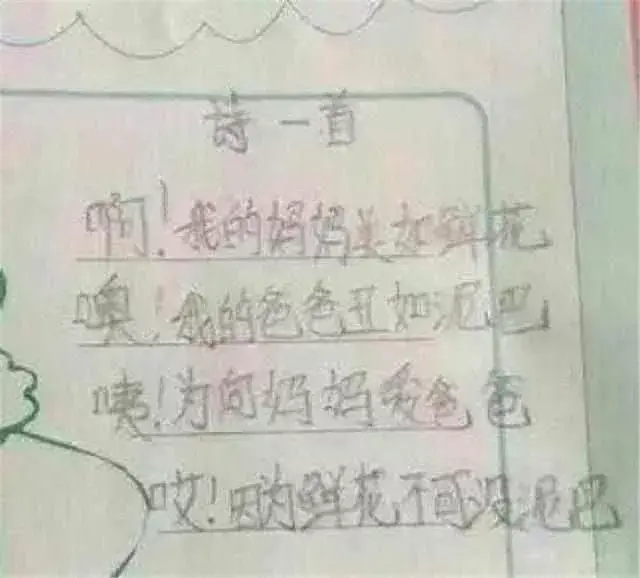 诗一首
啊！我的妈妈美如鲜花
噢！我的爸爸丑如泥巴
咦！为何妈妈爱爸爸
哎！因为鲜花不可没泥巴